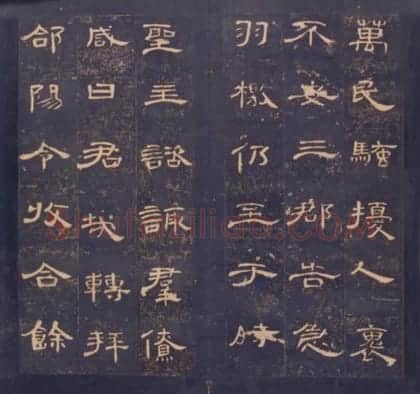 萬民騷擾人褱
不安三郡告急
羽檄仍至于時
聖主諮諏羣僚
咸曰君哉轉拜
郃陽令收合餘